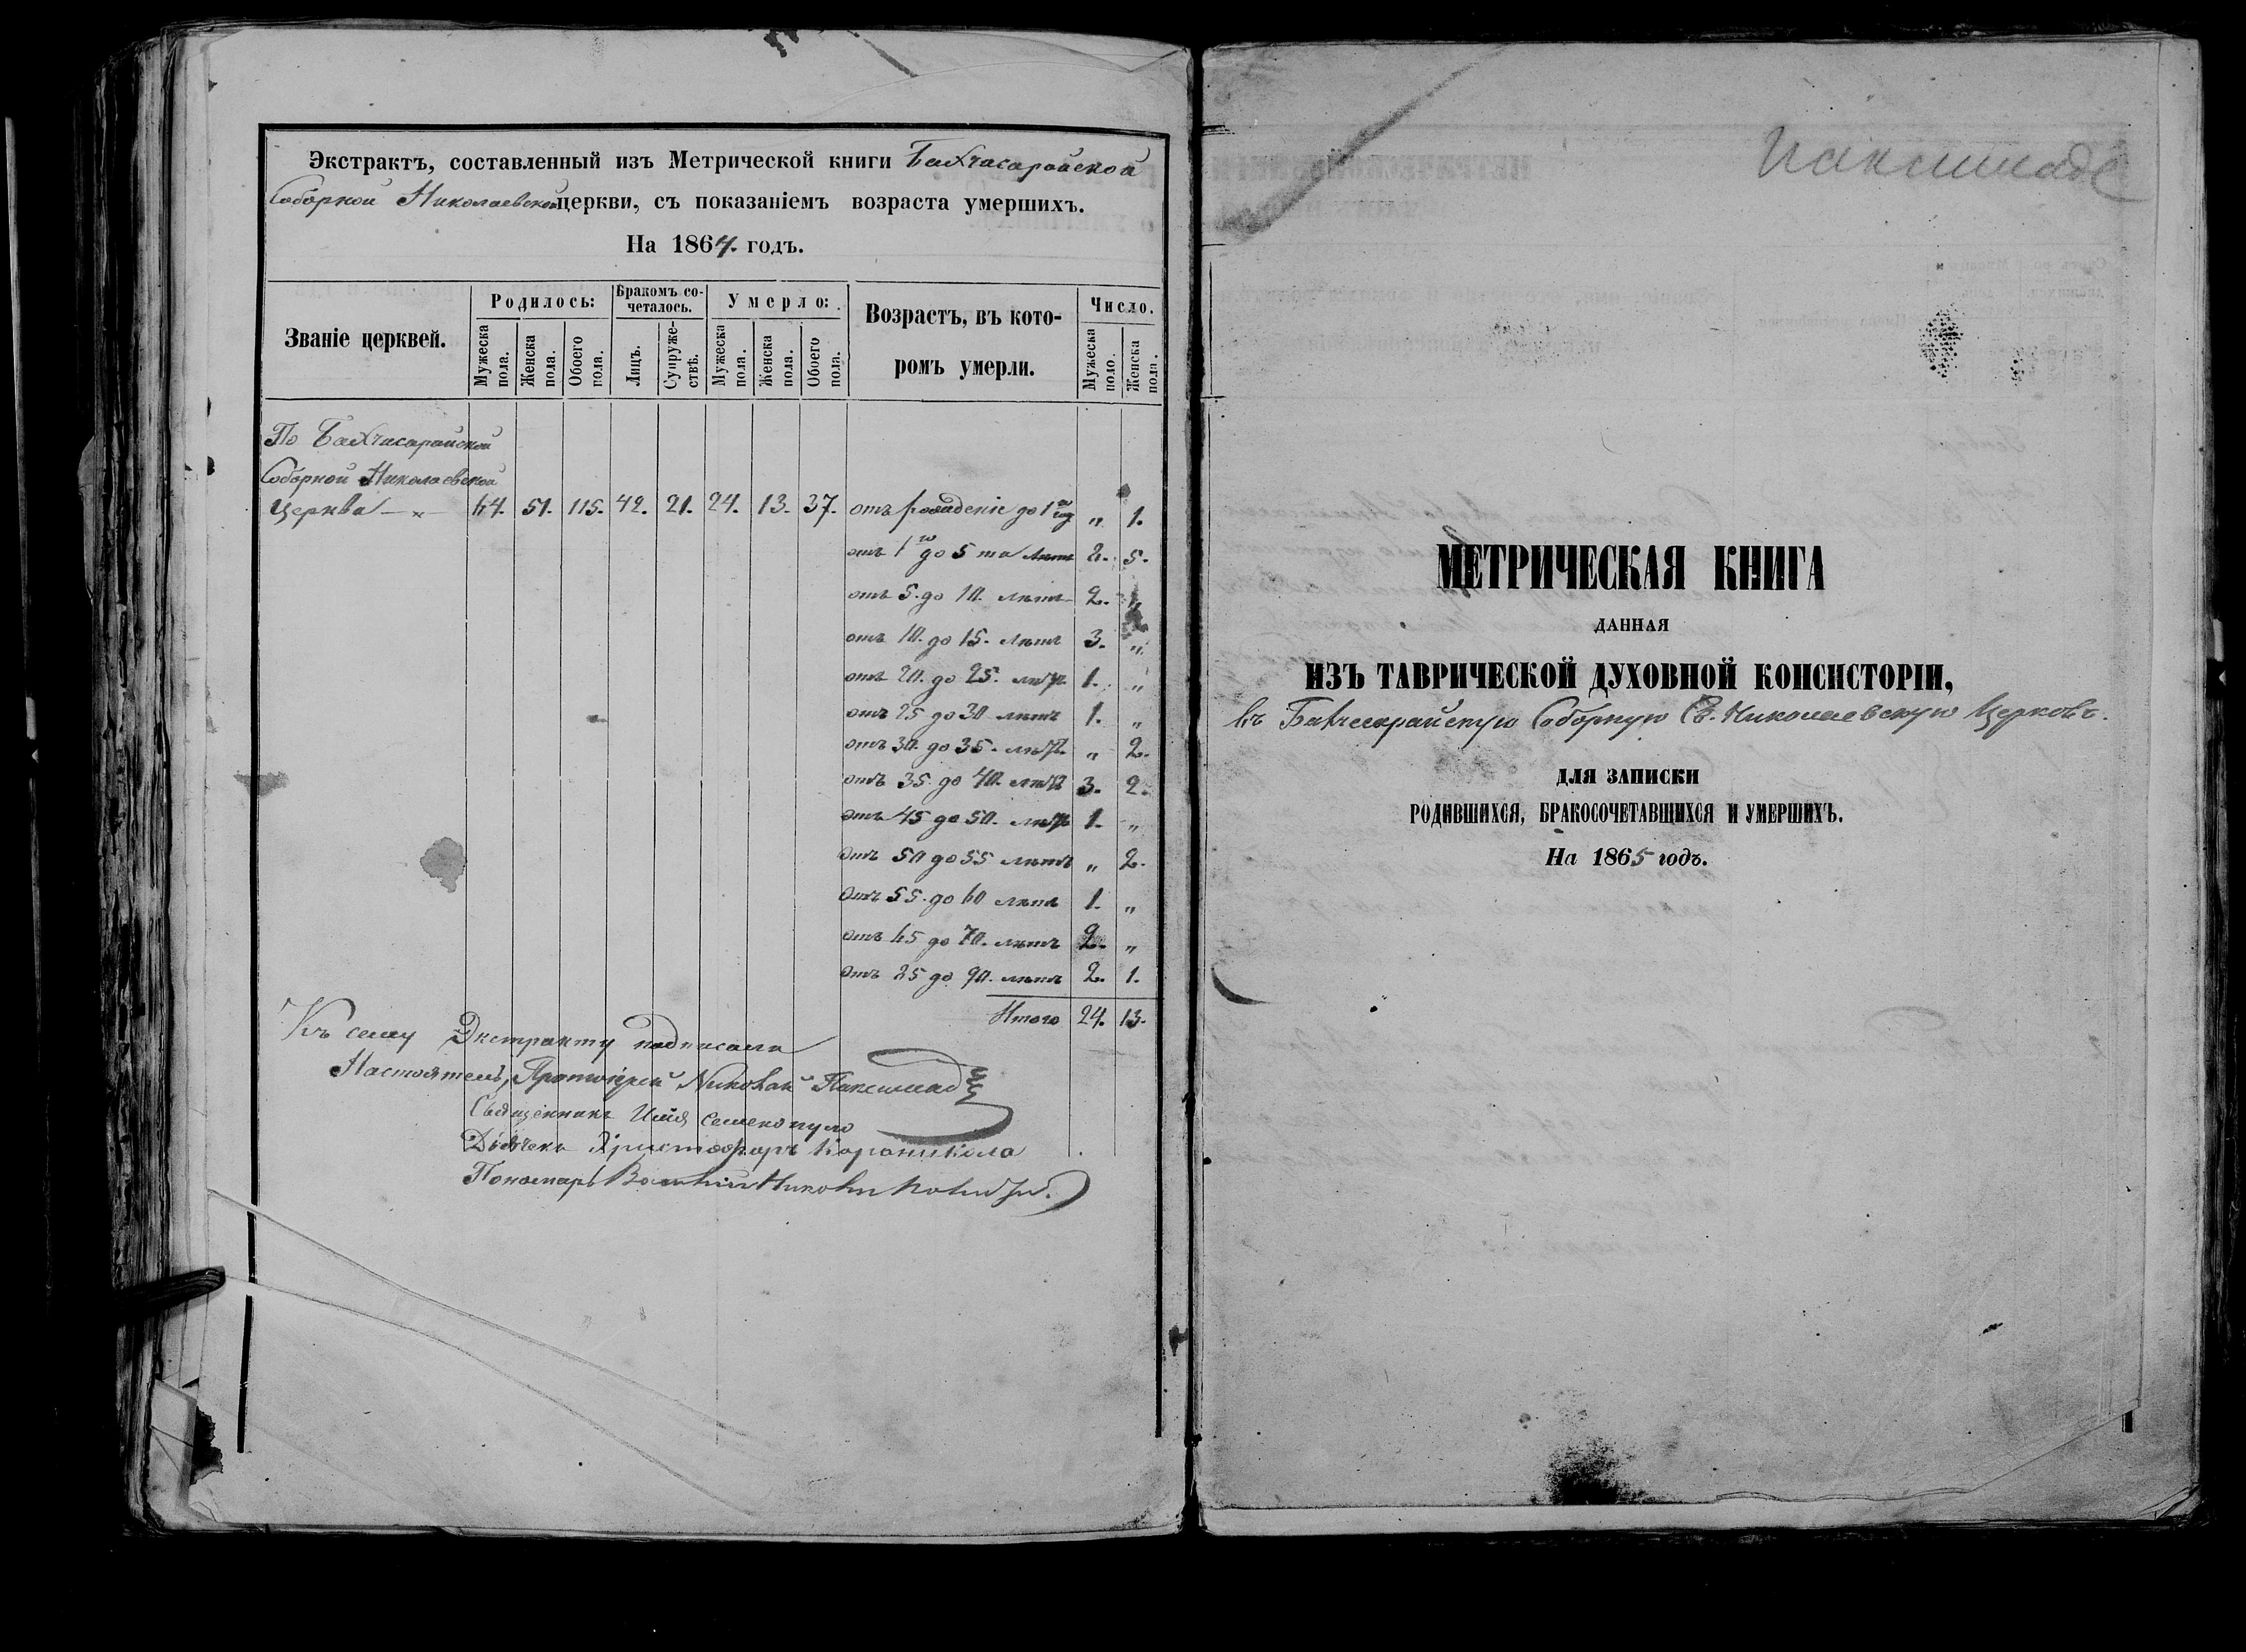 Экстрактъ, составленный изъ Метрической книги Бахчисарайской
Соборной Николаевской церкви, съ показаніемъ возраста умершихъ.
На 1864. годъ.
Званіе церквей.
Родилось:
Бракомъ со-
четалось.
Умерло:
Возрастъ, въ кото-
ромъ умерли.
Число.
Мужеска пола.
Женска пола.
Обоего пола.
Лицъ.
Супруже-
ствъ.
Мужеска пола.
Женска пола.
Обоего пола.
Мужеска поло.
Женска пола.
По Бахчисарайской
Соборной Николаевской
Церкви 64. 51. 115. 42. 21. 24. 13. 37. отъ рожденіе до 1 го „ 1.
отъ 1 го до 5 ти лѣтъ 8. 5.
отъ 5. до 10. лѣтъ 2.
отъ 10. до 15. лѣтъ 3. „
отъ 20. до 25. лѣтъ 1. „
отъ 25 до 30 лѣтъ 1. „
отъ 30. до 35. лѣтъ „ 2.
отъ 35. до 40. лѣтъ 3. 2.
отъ 45 до 50. лѣтъ 1. „
отъ 50 до 55 лѣтъ „ 2.
отъ 55. до 60 лѣтъ 1. „
отъ 65 до 70. лѣтъ 2. „
отъ 85 до 90. лѣтъ 2. 1.
Итого 24. 13.
Къ сему Экстракту подписали
Настоятель, Протоіерей Николай Паксимад
Священникъ Илія
Дьячекъ Христофоръ
Пономарь
Паксимаде
МЕТРИЧЕСКАЯ КНИГА
ДАННАЯ
ИЗЪ ТАВРИЧЕСКОЙ ДУХОВНОЙ КОНСИСТОРІИ,
въ Бахчсарайскую Соборную Св. Николаевскую Церковь.
ДЛЯ ЗАПИСКИ
РОДИВШИХСЯ, БРАКОСОЧЕТАВЩИХСЯ И УМЕРШИХЪ.
На 1865 годъ.